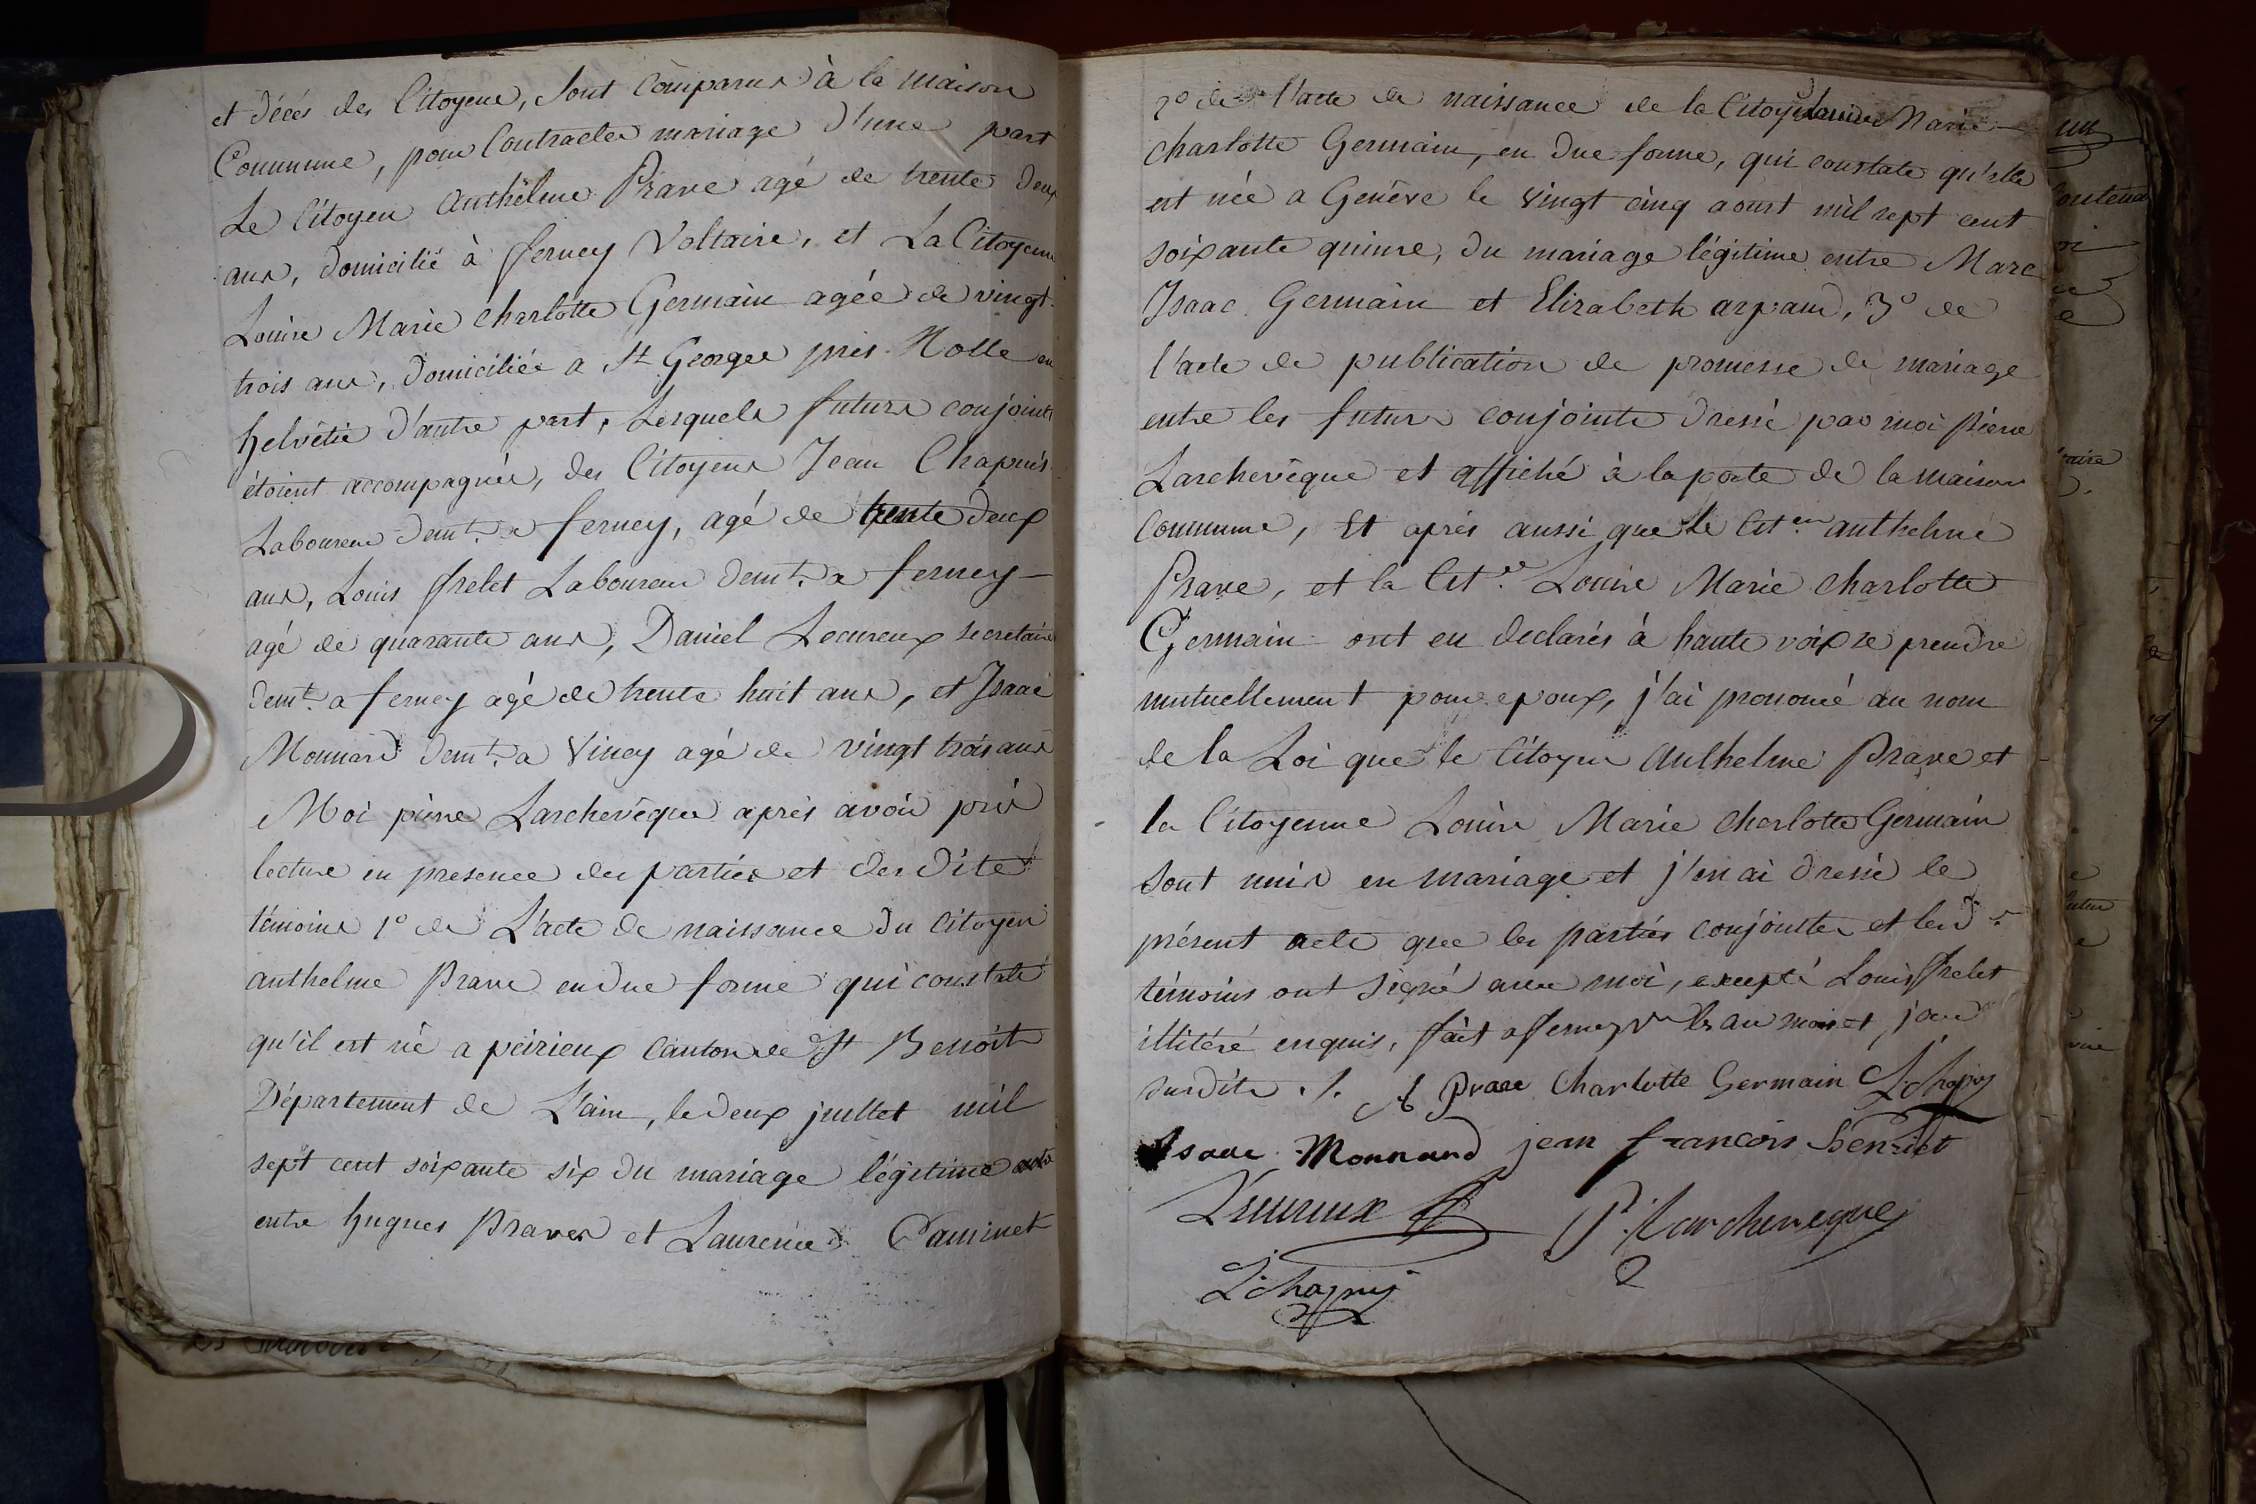 et décès des Citoyens, sont comparus à la maison
Commune, pour Contracter mariage d'une part
Le Citoyen Anthelme Prave agé de trente deux
ans, domicilié à ferney Voltaire, et La Citoyenne
Louise Marie Charlotte Germain agée de vingt
trois ans, domiciliée a St George près Rolle en
helvétie d'autre part, Lesquels futurs conjoints
étoient accompagnés, des Citoyens Jean Chapuis
Laboureur demt. a ferney, agé de trente deux
ans, Louis frelet Laboureur demt. a ferney —
agé de quarante ans, Daniel Lecureux secretaire
demt. a ferney agé de trente huit ans, et Isaac
Monnard demt. a Viney agé de vingt trois ans
Moi pierre Larchevêque après avoir pris
lecture en presence des parties et des dits
témoins 1o de L'acte de naissance du Citoyen
anthelme Prave en due forme qui constate
qu'il est né a peirieux Canton de St Benoit
Département de L'ain, le deux juillet mil
sept cent soixante six du mariage légitime
entre hugues Praves et Laurence Caminet
2o de l'acte de naissance de la Citoyenne Louise Marie
Charlotte Germain, en due forme, qui constate qu'elle
est née a Genêve le vingt cinq aoust mil sept cent
soixante quinze, du mariage légitime entre Marc
Isaac Germain et Elizabeth arpaud, 3o de
l'acte de publication de promesse de mariage
entre les futurs conjoints dressé par moi Pierre
Larchevêque et affiché à la porte de la maison
Commune, Et après aussi que Le Citen anthelme
Prave, et la Cit.ne Louise Marie Charlotte
Germain ont eu declarés à haute voix se prendre
mutuellement pour epoux, j'ai prononcé au nom
de la Loi que le Citoyen Anthelme Prave et
la Citoyenne Louise Marie Charlotte Germain
sont unis en mariage et j'en ai dressé le
présent acte que les parties conjointes et les d.s
témoins ont signé avec moi, excepté Louis frelet
illitéré enquis, fait a ferney Vre les an mois et jour
susdits ./. A Prave Charlotte Germain L: Chapuis
Isaac Monnard jean françois henriet
Lecureux P. Larcheveque
L: Chapuis